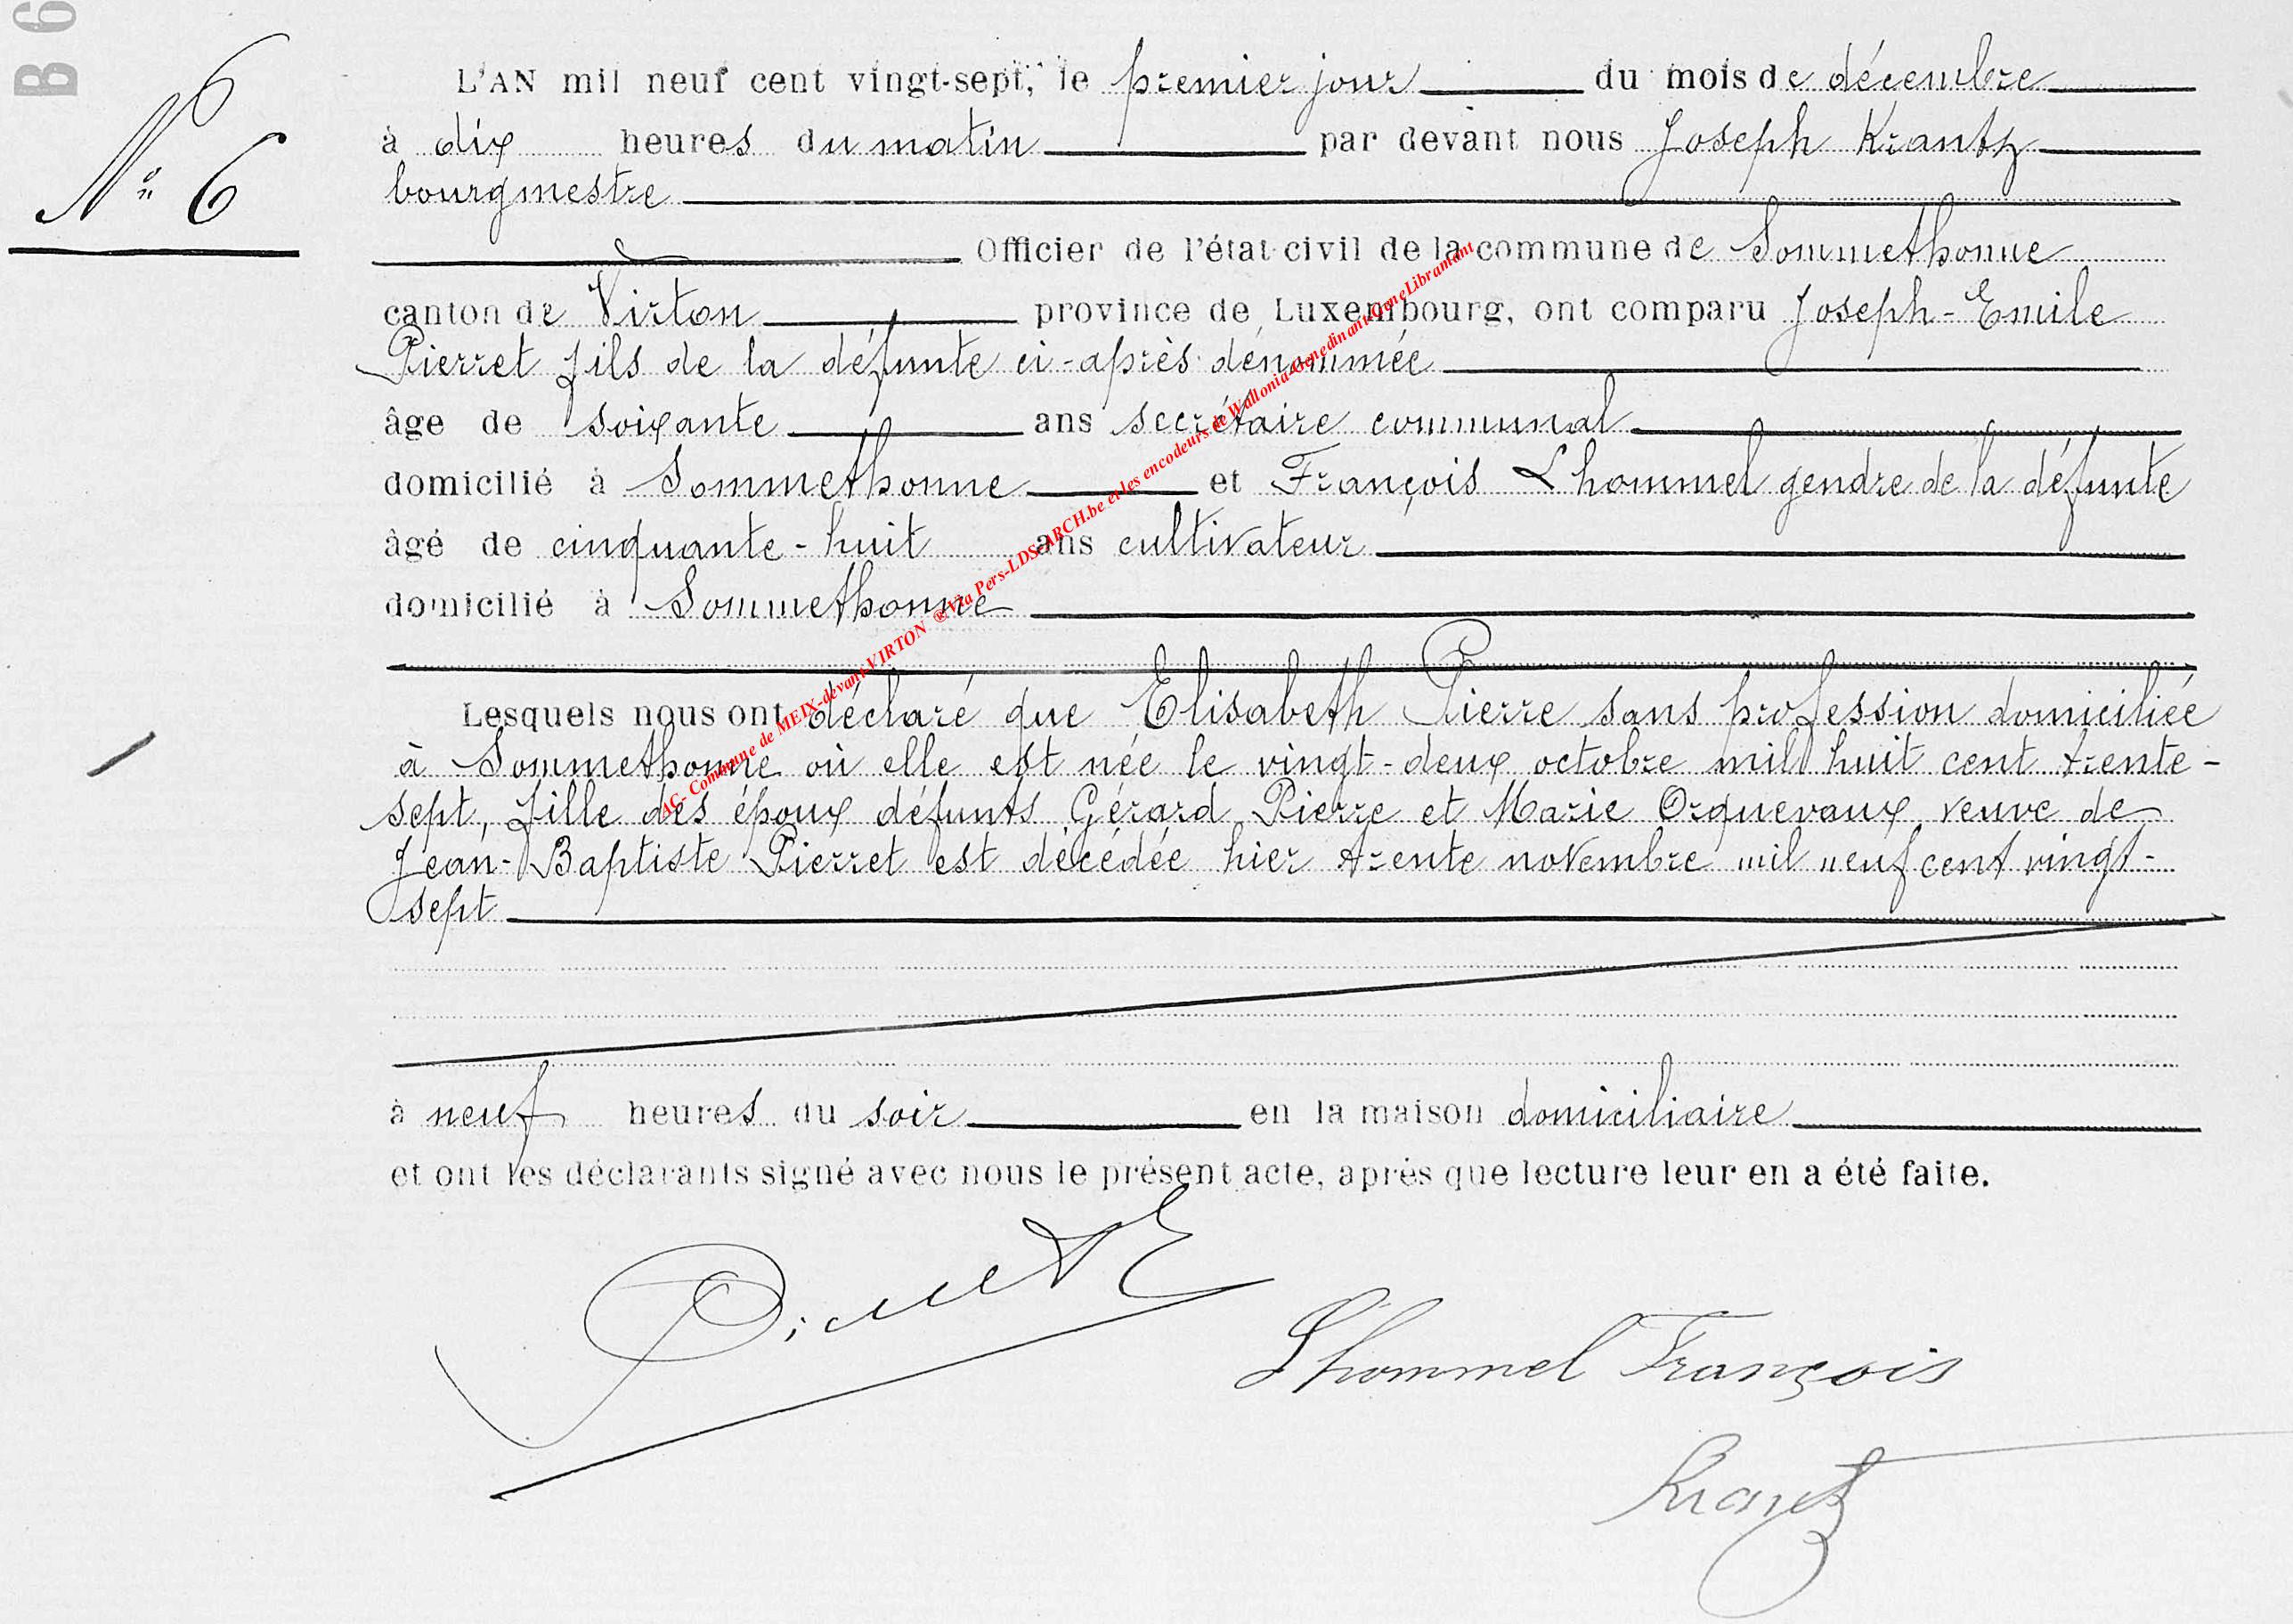 B 6
N° 6
L'AN mil neuf cent vingt-sept, le premier jour du mois de décembre
à dix heures du matin par devant nous Joseph Krantz
bourgmestre
Officier de l'état-civil de la commune de Sommethonne
canton de Virton province de Luxembourg, ont comparu Joseph-Emile
Pierret fils de la défunte ci-après dénommée
âge de soixante ans secrétaire communal
domicilié à Sommethonne et François Lhommel gendre de la défunte
âgé de cinquante-huit ans cultivateur
domicilié à Sommethonne
Lesquels nous ont déclaré que Elisabeth Pierre sans profession domiciliée
à Sommethonne où elle est née le vingt-deux octobre mil huit cent trente-
sept, fille des époux défunts Gérard Pierre et Marie Orquevaux veuve de
Jean-Baptiste Pierret est décédée hier trente novembre mil neuf cent vingt-
sept
à neuf heures du soir en la maison domiciliaire
et ont les déclarants signé avec nous le présent acte, après que lecture leur en a été faite.
Pierret E
Lhommel François
Krantz
AC- Commune de MEIX-devant-VIRTON ® Via Pers-LDS-ARCH.be et les encodeurs de Wallonia-Genedinant-GeneLibramont